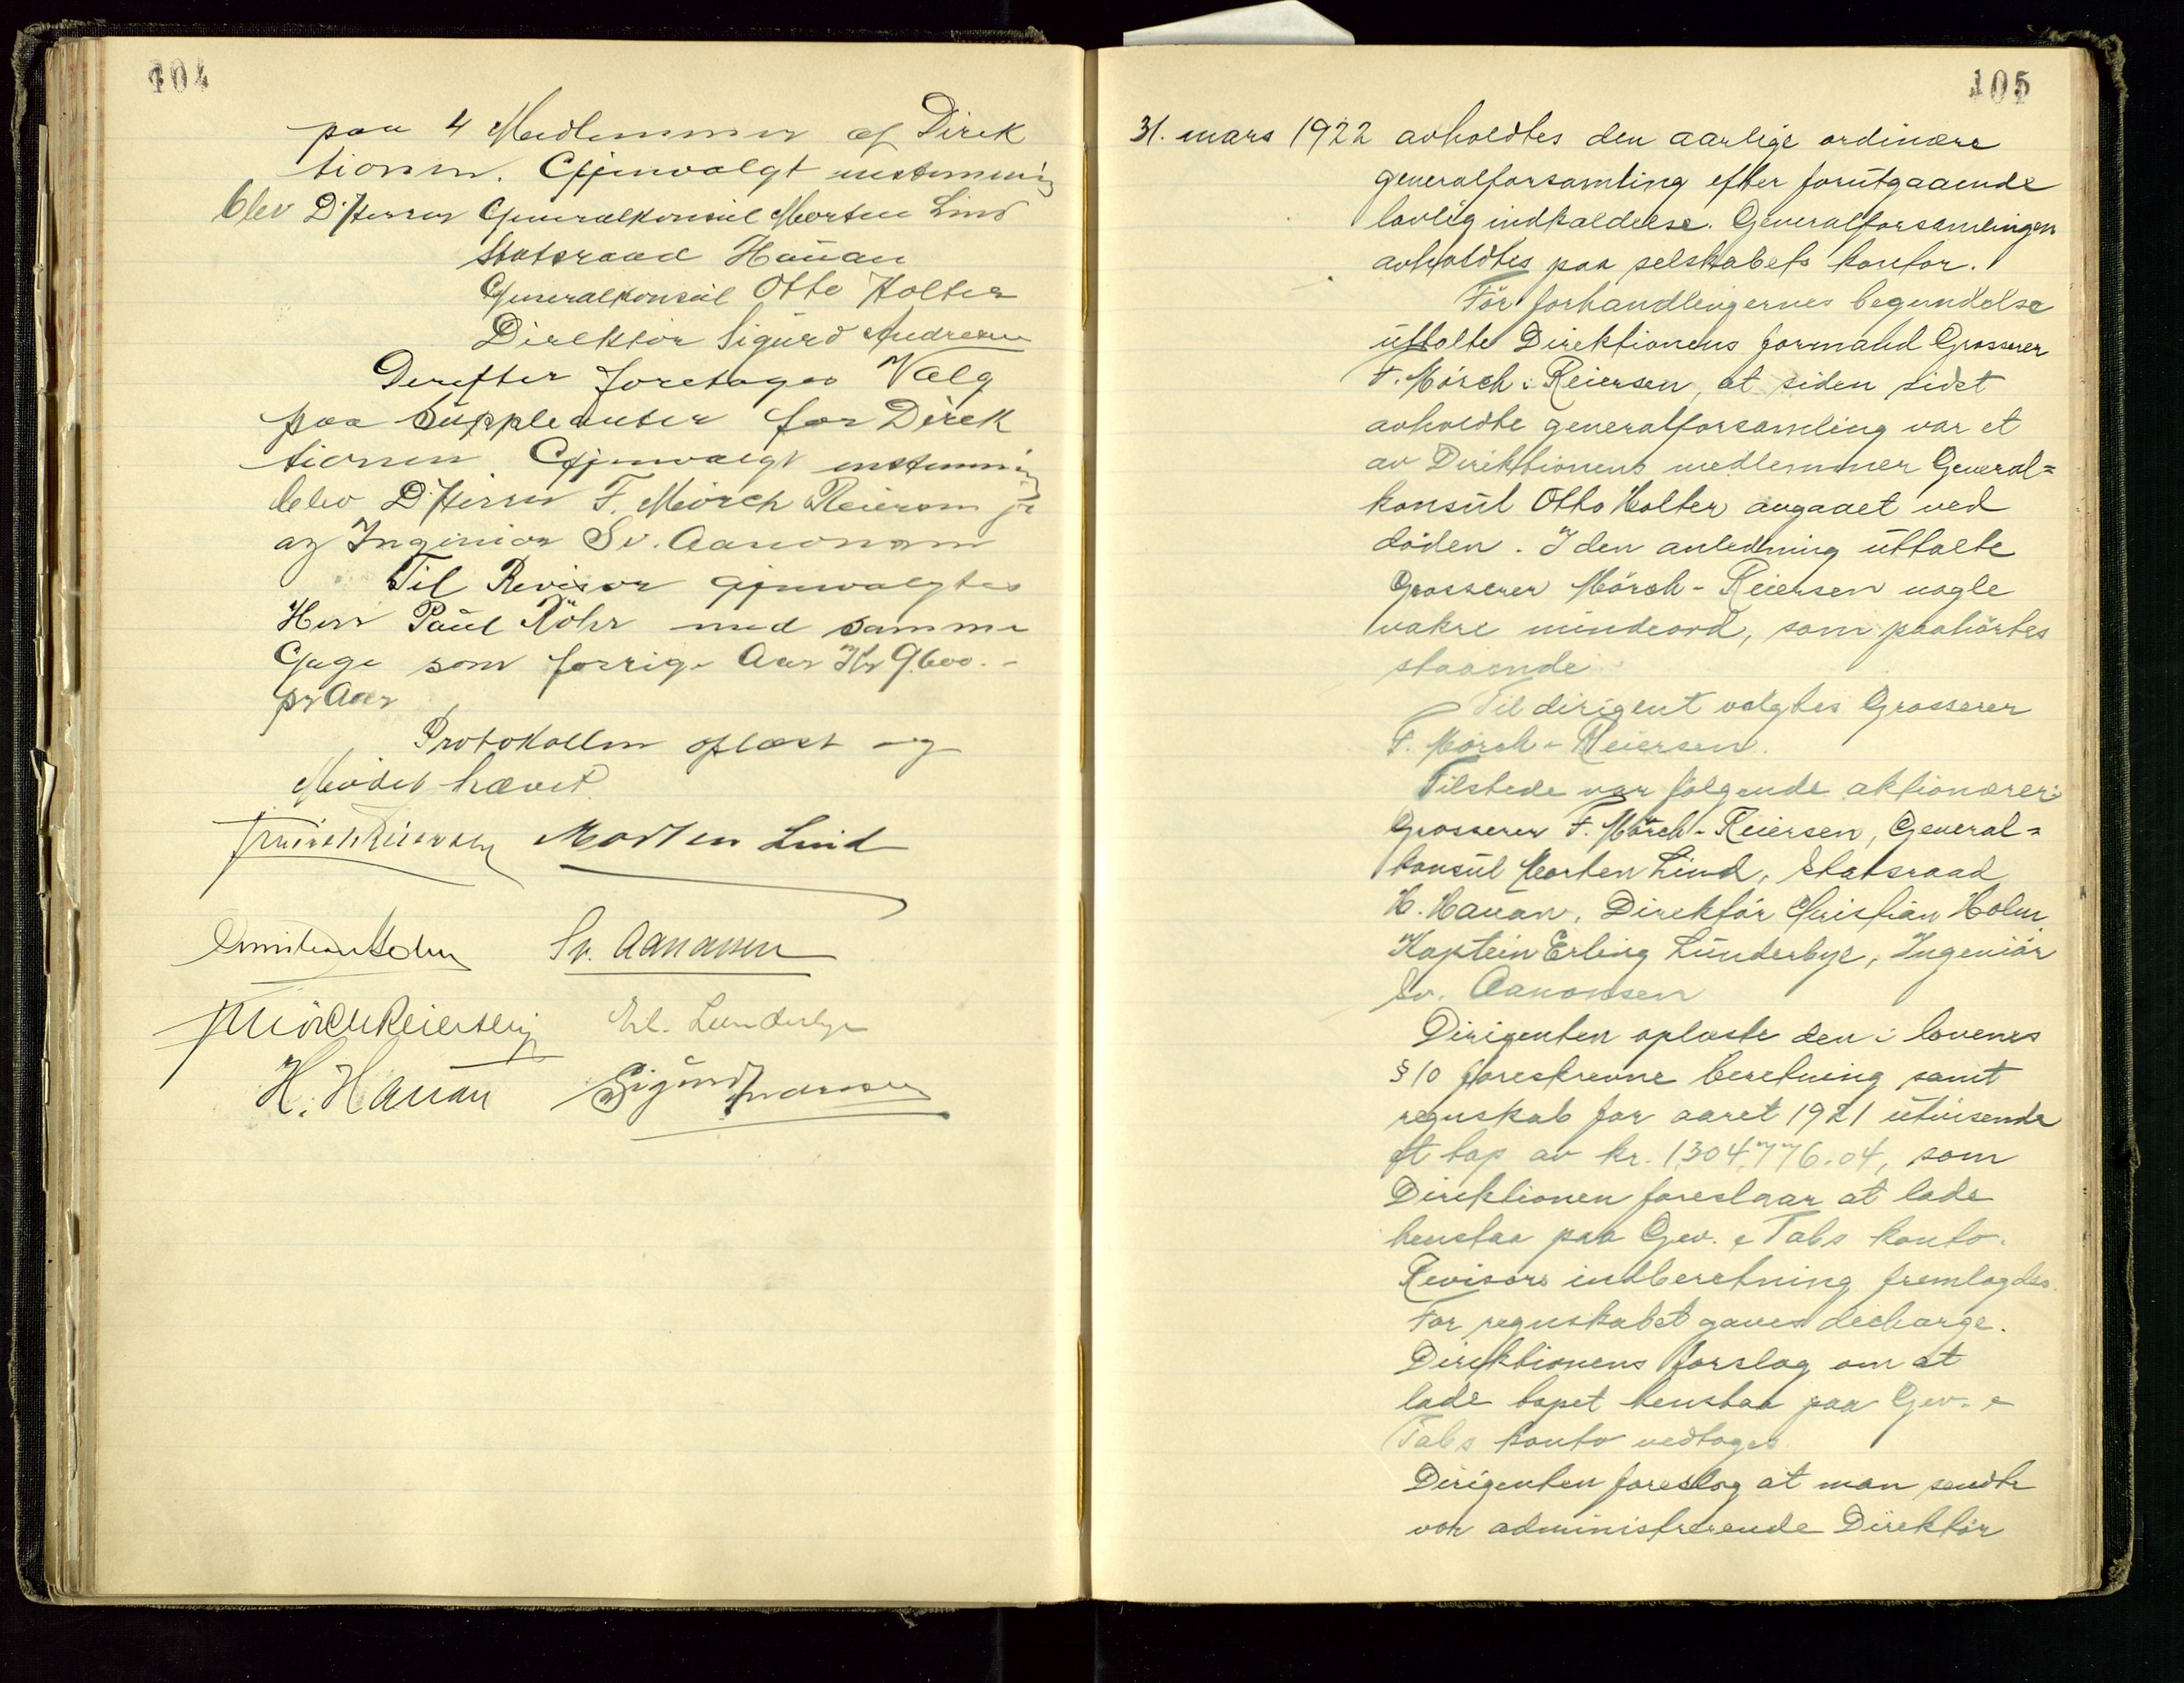 104
paa 4 Medlemmer af Direk
tionen. Gjenvalgt enstemmig
blev D'Herrer Generalkonsul Morten Lind
Statsraad Hauan
Generalkonsul Otto Holter
Direktör Sigurd Andresen
Derefter foretoges Valg
paa Suppleanter for Direk
tionen. Gjenvalgt enstemmig
blev D'Herrer F. Mörch Reiersen jr
og Ingeniör Sv. Aanonsen
Til Revisor gjenvalgtes
Herr Paul Röhr med samme
Gage som forrige Aar Kr 9.600.-
pr Aar
Protokollen oplæst og
Mödet hævet.
F Mörch Reiersen Morten Lind
Christian Holm Sv. Aanonsen
F Mörch Reiersen jr Erl. Lunderbye
H. Hauan Sigurd Andresen
105
31. mars 1922 avholdtes den aarlige ordinære
generalforsamling efter forutgaaende
lovlig indkaldelse. Generalforsamlingen
avholdtes paa selskabets kontor.
För forhandlingernes begyndelse
uttalte Direktionens formand Grosserer
F. Mörch-Reiersen, at siden sidst
avholdte generalforsamling var et
av Direktionens medlemmer General=
konsul Otto Holter avgaaet ved
döden. I den anledning uttalte
Grosserer Mörch-Reiersen nogle
vakre mindeord, som paahörtes
staaende.
Til dirigent valgtes Grosserer
F. Mörch-Reiersen.
Tilstede var fölgende aktionærer:
Grosserer F. Mörch-Reiersen, General=
konsul Morten Lind, Statsraad
H. Hauan, Direktör Christian Holm
Kaptein Erling Lunderbye, Ingeniör
Sv. Aanonsen
Dirigenten oplæste den i lovenes
§ 10 foreskrevne beretning samt
regnskab for aaret 1921 utvisende
et tap av kr. 1,304,776.04, som
Direktionen foreslaar at lade
henstaa paa Gev. & Tabs konto.
Revisors indberetning fremlagdes.
For regnskabet gaves decharge.
Direktionens forslag om at
lade tapet henstaa paa Gev. &
Tabs konto vedtoges.
Dirigenten foreslog at man sendte
vor administrerende Direktör